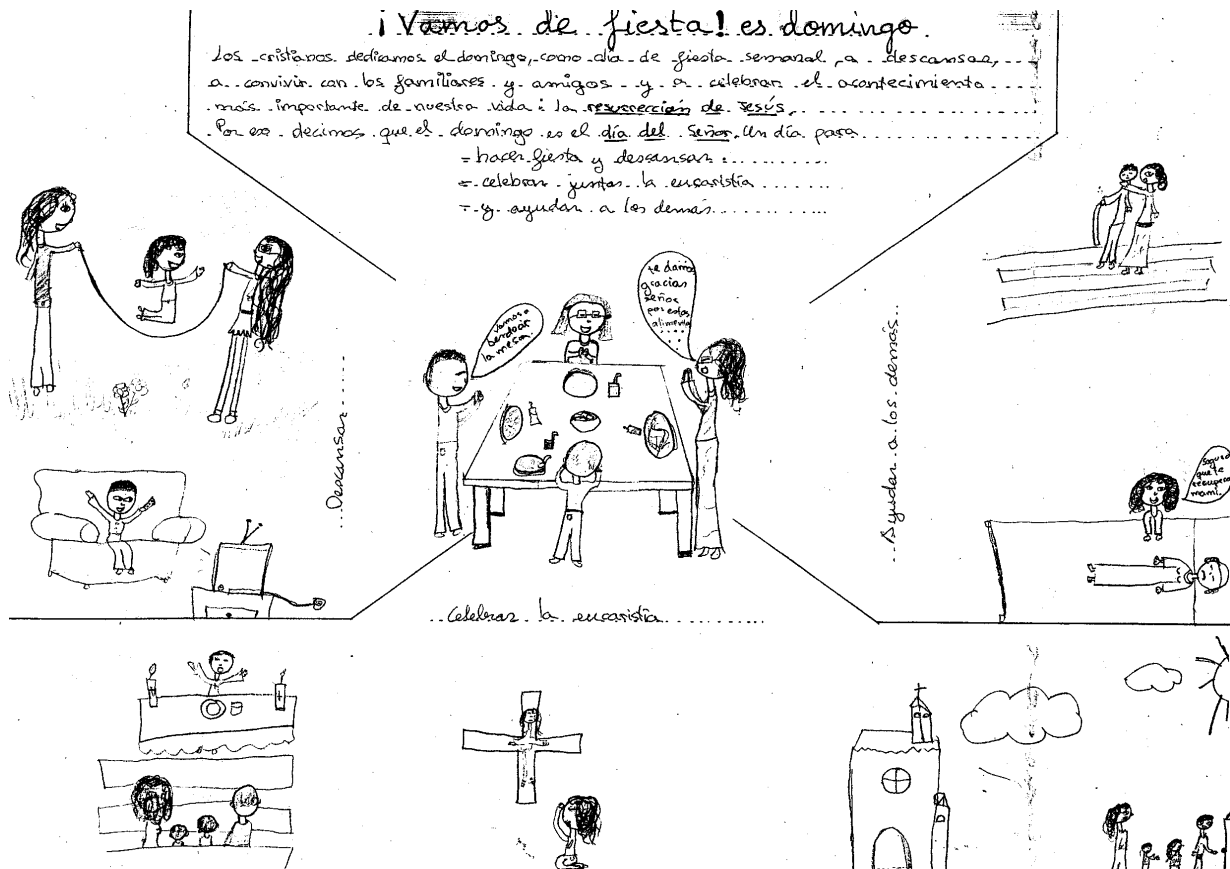 ¡Vamos de fiesta! es domingo.
Los cristianos dedicamos el domingo, como día de fiesta semanal, a descansar,
a convivir con los familiares y amigos y a celebrar el acontecimiento
más importante de nuestra vida: la resurrección de Jesús.
Por eso decimos que el domingo es el día del Señor. Un día para
- hacer fiesta y descansar
- celebrar juntos la eucaristía
- y ayudar a los demás
te damos
gracias
señor
por estos
alimentos
vamos a
bendecir
la mesa.
Descansar
Ayudar a los demás
Seguro
que te
recuperas
mami.
Celebrar la eucaristía